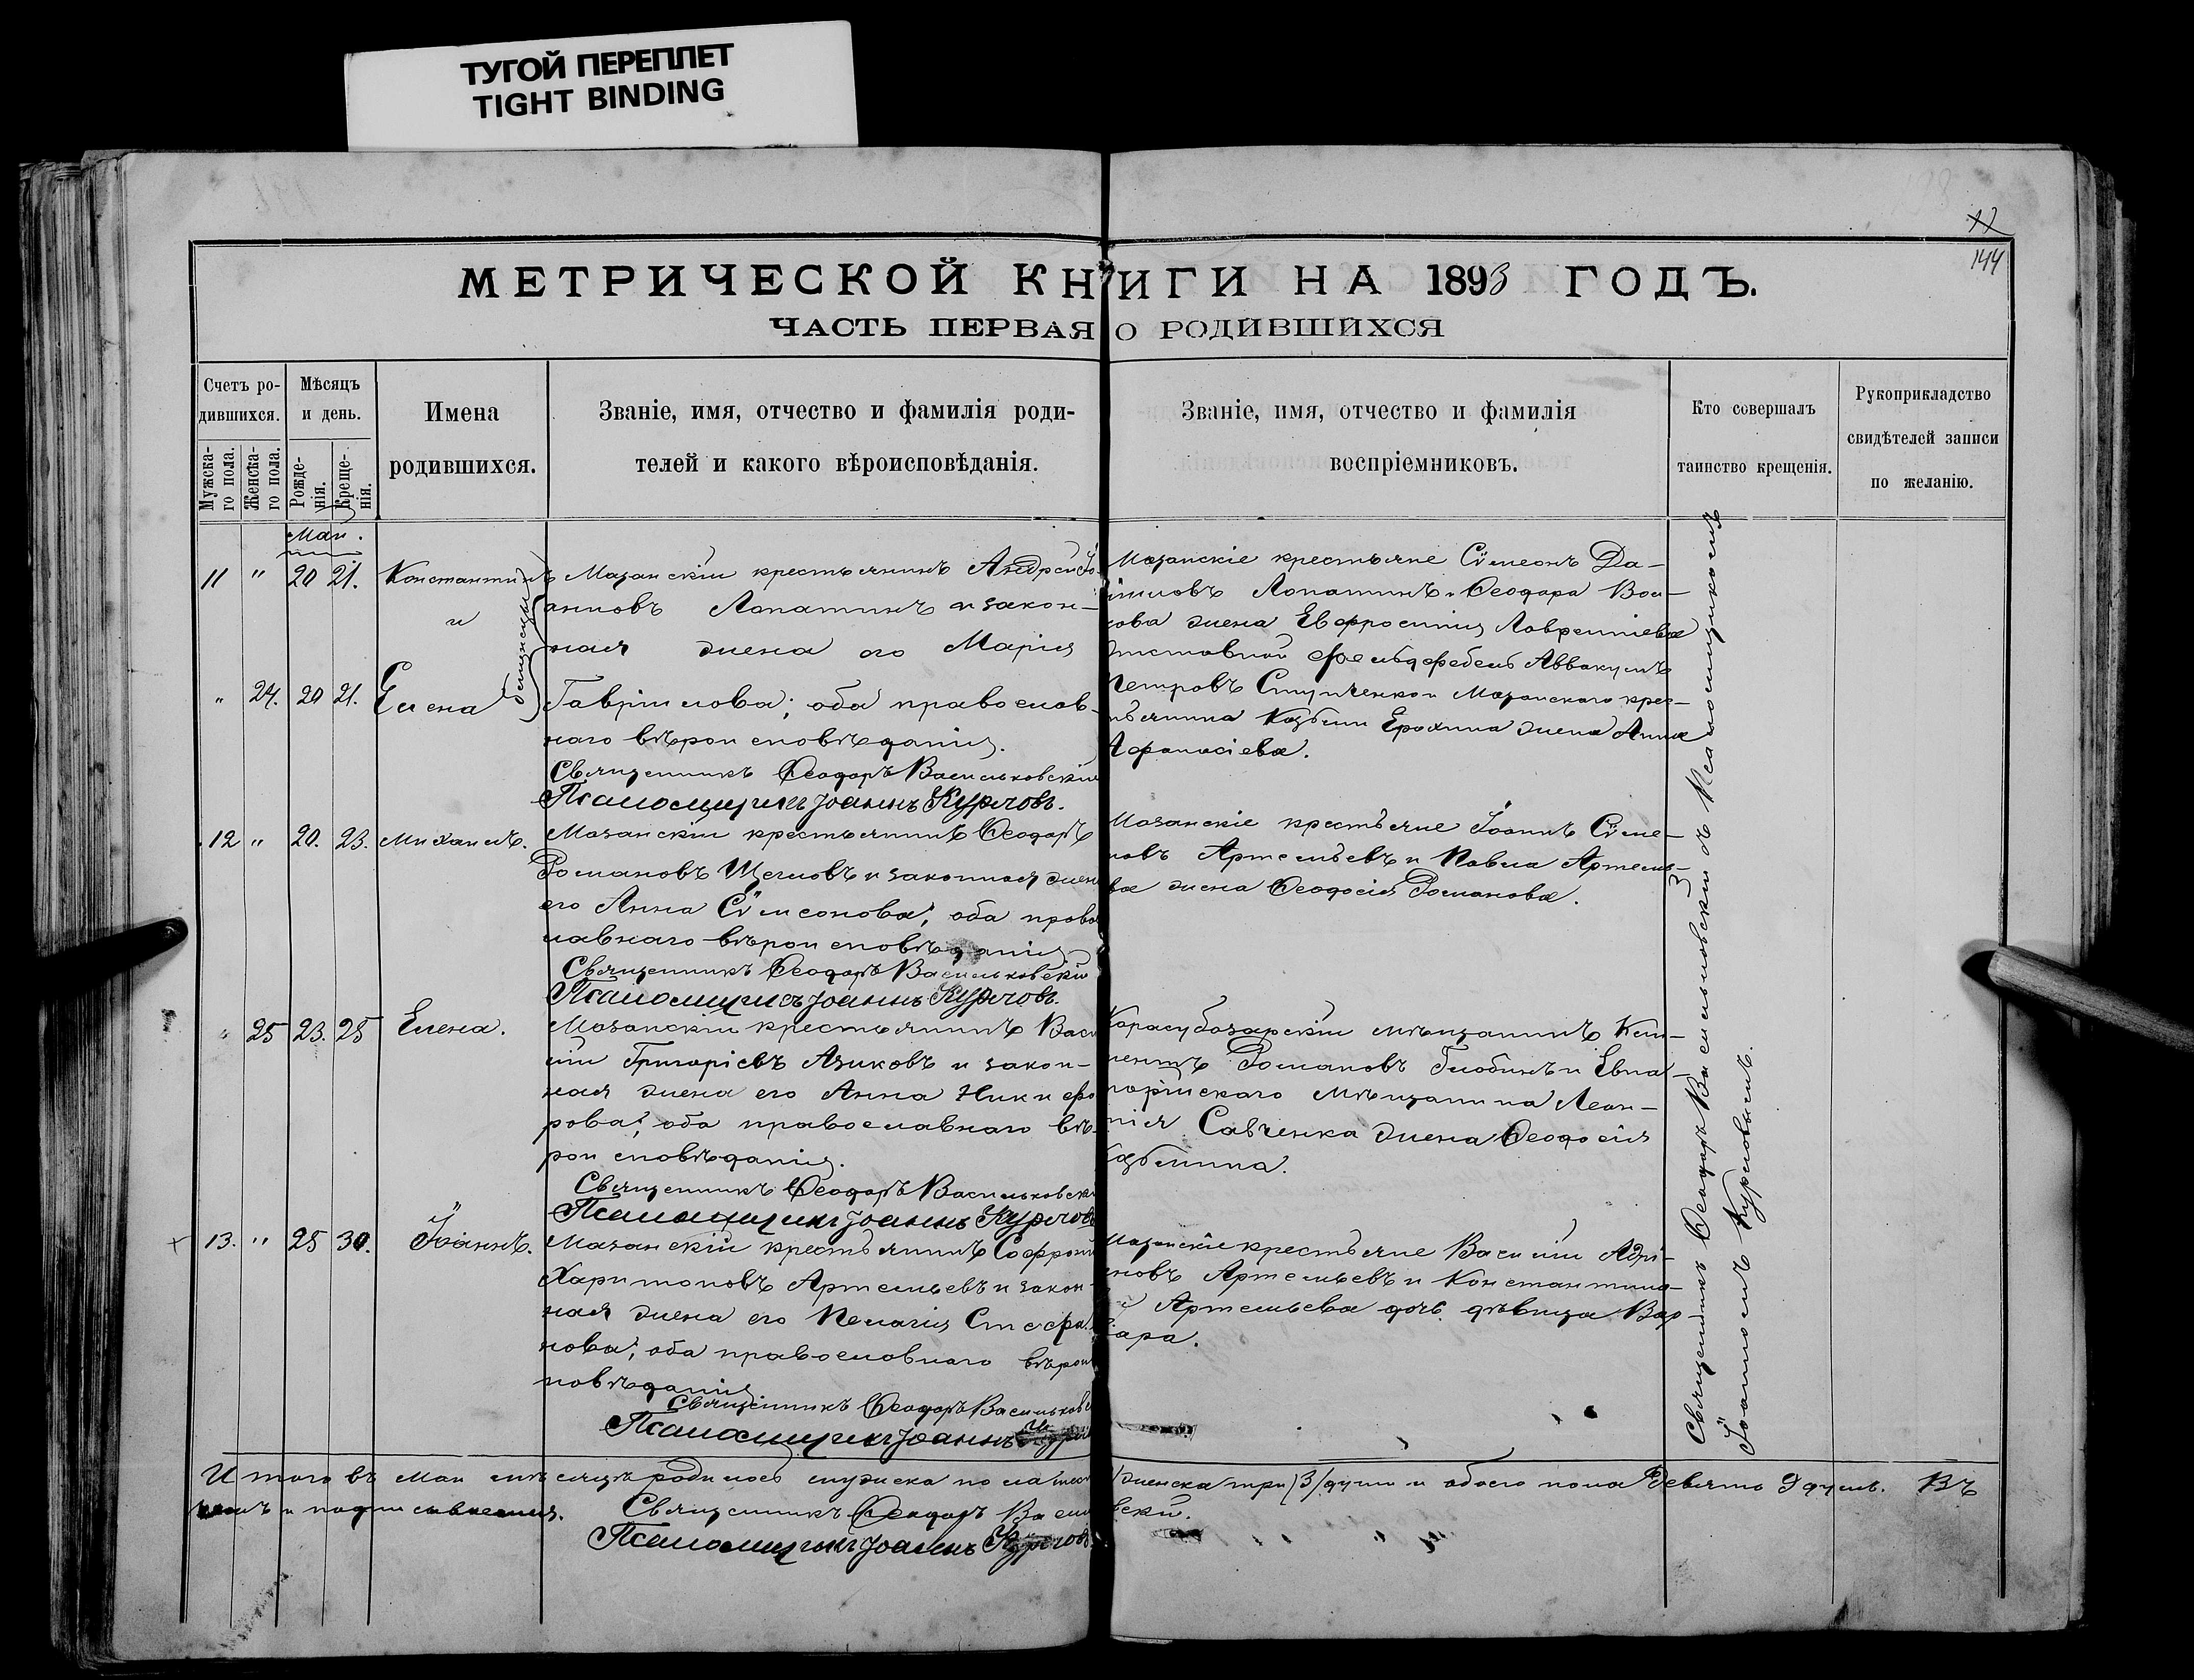 ТУГОЙ ПЕРЕПЛЕТ
TIGHT BINDING
144
МЕТРИЧЕСКОЙ КНИГИ НА 1893 ГОДЪ.
ЧАСТЬ ПЕРВАЯ О РОДИВШИХСЯ
Счетъ ро-
дившихся.
Мужска-
го пола.
Женска-
го пола.
Мѣсяцъ
и день.
Рожде-
нія.
Креще-
нія.
Имена
родившихся.
Званіе, имя, отчество и фамилія роди-
телей и какого вѣроисповѣданія.
Званіе, имя, отчество и фамилія
воспріемниковъ.
Кто совершалъ
таинство крещенія.
Рукоприкладство
свидѣтелей записи
по желанію.
Маи.
11 " 20 21. Константинъ
и
" 24. 20 21. Елена
близнецы
Мазанскій крестьянинъ Андрей Іо-
анновъ Лопатинъ и закон-
ная жена его Марія
Гавріилова; оба православ-
наго вѣроисповѣданія.
Священникъ Ѳеодоръ Васильковскій
Псаломщикъ Іоаннъ Курловъ.
Мазанскіе крестьяне Сѵмеонъ Да-
ніиловъ Лопатинъ и Ѳеодора
жена Евфросинія Лаврентіева
фельдфебель Аввакумъ
Петровъ Ступченко и Мазанскаго крес-
тьянина Козьмы Ерохина жена Анна
Афанасіева.
12 " 20. 23. Михаилъ.
Мазанскій крестьянинъ Ѳеодоръ
Романовъ Щегловъ и законная жена
его Анна Сѵмеонова; оба правос
лавнаго вѣроисповѣданія
Священникъ Ѳеодоръ Васильковскій
Псаломщикъ Іоаннъ Курловъ.
Мазанскіе крестьяне Іоаннъ Сѵме-
новъ Артемьевъ и Павла Артемь-
ва жена Ѳеодосія Романова.
" 25 23. 25 Елена.
Мазанскій крестьянинъ Васи
лій Григоріевъ Азиковъ и закон-
ная жена его Анна Никифо
рова; оба православнаго вѣ-
роисповѣданія.
Священникъ Ѳеодоръ Васильковскій
Псаломщикъ Іоаннъ Курловъ
Карасубазарскій мѣщанинъ Кли-
ментъ Романовъ Глобинъ и Евпа-
торійскаго мѣщанина Леон-
тія Савченка жена Ѳеодосія
Козьмина.
13. " 25 30. Іоаннъ.
Мазанскій крестьянинъ Софроній
Харитоновъ Артемьевъ и закон-
ная жена его Пелагія Стефа-
нова; оба православнаго вѣроис
повѣданія
Священникъ Ѳеодоръ Васильковс
Псаломщикъ Іоаннъ
Мазанскіе крестьяне Василій Адрі-
новъ Артемьевъ и Константина
Артемьева дочь дѣвица Вар-
вара.
Священникъ Ѳеодоръ Васильковскій съ Псаломщикомъ
Іоанномъ Курловымъ.
Итого въ маи мѣсяцѣ родилось мужска пола
женска три /3/ души и обоего пола девять 9 душъ. Въ
Священникъ Ѳеодоръ Василь вскій.
Псаломщикъ Іоаннъ Курловъ